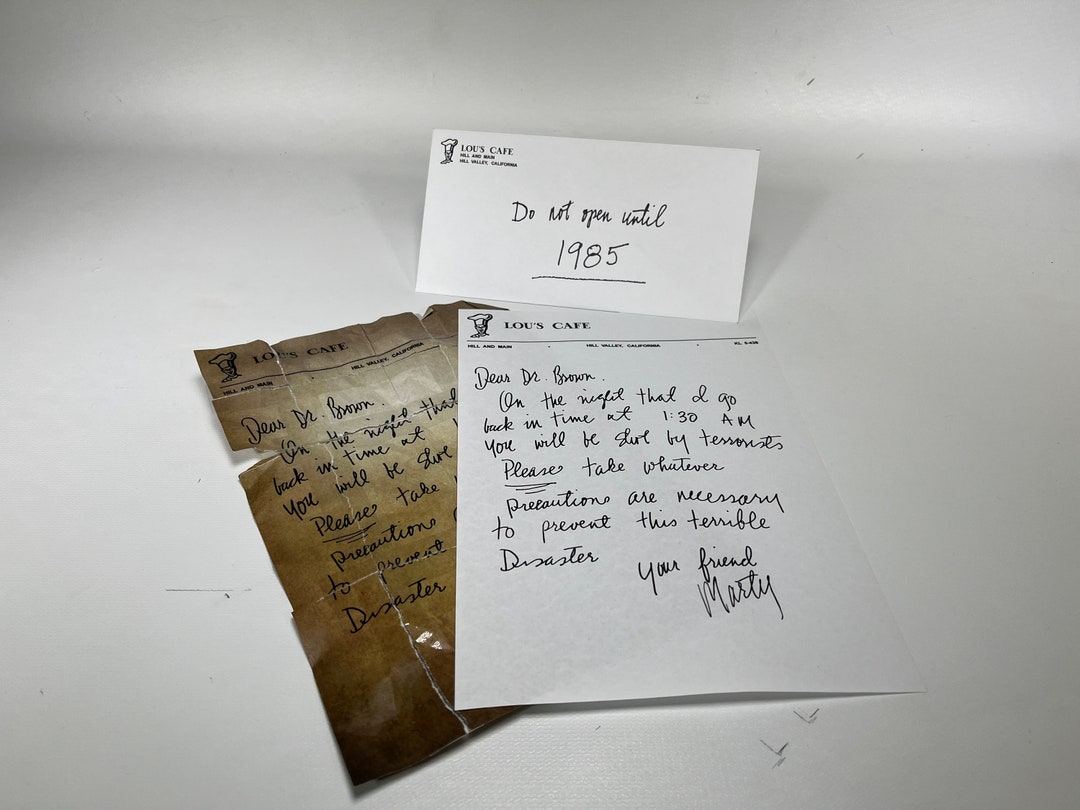 LOU'S CAFE
HILL AND MAIN
HILL VALLEY, CALIFORNIA
Do not open until
1985
LOU'S CAFE
HILL AND MAIN · HILL VALLEY, CALIFORNIA
Dear Dr. Brown.
On the night that
back in time at
You will be shot
Please take
precautions
to prevent
Disaster
LOU'S CAFE
HILL AND MAIN · HILL VALLEY, CALIFORNIA · KL 5-436
Dear Dr. Brown.
On the night that I go
back in time at 1:30 AM
You will be shot by terrorists
Please take whatever
precautions are necessary
to prevent this terrible
Disaster
Your friend
Marty